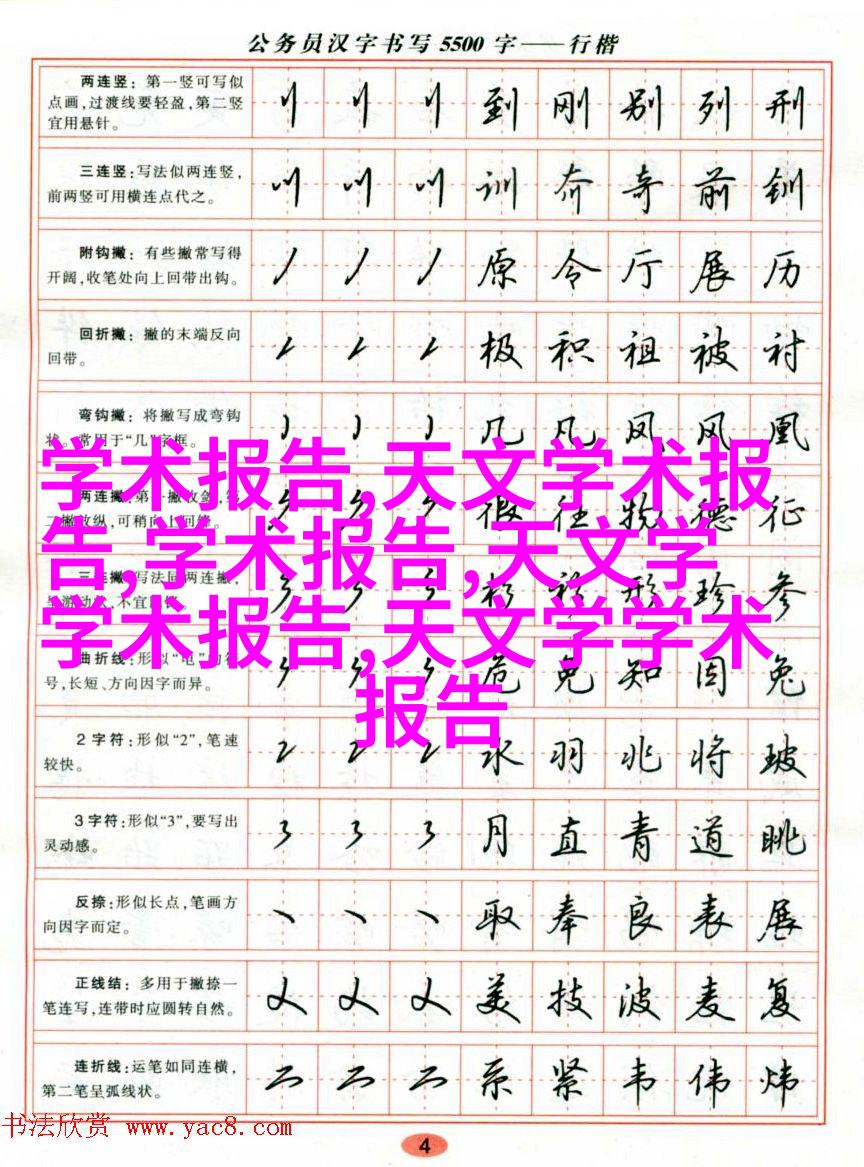 公务员汉字书写5500字——行楷
两连竖：第一竖可写似
点画，过渡线要轻盈，第二竖
宜用悬针。
到 刚 别 列 刑
三连竖：写法似两连竖，
前两竖可用横连点代之。
训 夼 奇 前 钏
附钩撇：有些撇常写得
开阔，收笔处向上回带出钩。
原 令 厅 展 历
回折撇：撇的末端反向
回带。
极 积 祖 被 衬
弯钩撇：将撇写成弯钩
状。常用于“几”字框。
几 凡 凤 风 凰
学术报告,天文学术报
告,学术报告,天文学
学术报告,天文学学术
报告
两连撇：第一撇收敛，第
二撇放纵，可稍向上回锋。
德 征
三连撇：写法同两连撇，
珍 参
曲折线：形似“电”的符
号，长短、方向因字而异。
危 免 知 因 兔
2字符：形似“2”，笔速
较快。
水 羽 兆 将 玻
3字符：形似“3”，要写出
灵动感。
月 直 青 道 眺
反捺：形似长点，笔画方
向因字而定。
取 奉 良 表 展
正线结：多用于撇捺一
笔连写，连带时应圆转自然。
美 技 波 麦 复
连折线：运笔如同连横，
第二笔呈弧线状。
系 紧 韦 伟 炜
书法欣赏 www.yac8.com
4